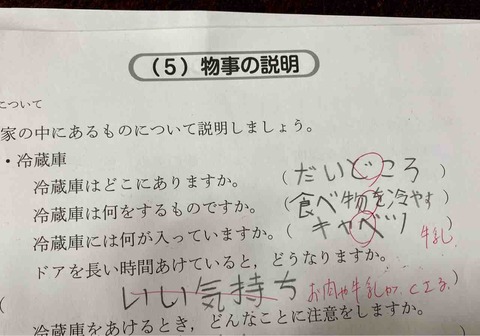 (5) 物事の説明
について
家の中にあるものについて説明しましょう。
・冷蔵庫
冷蔵庫はどこにありますか。 (だいどころ
冷蔵庫は何をするものですか。 (食べ物を冷やす
冷蔵庫には何が入っていますか。 (キャベツ ) 牛乳
ドアを長い時間あけていると,どうなりますか。
( いい気持ち お肉や牛乳が
冷蔵庫をあけるとき,どんなことに注意をしますか。